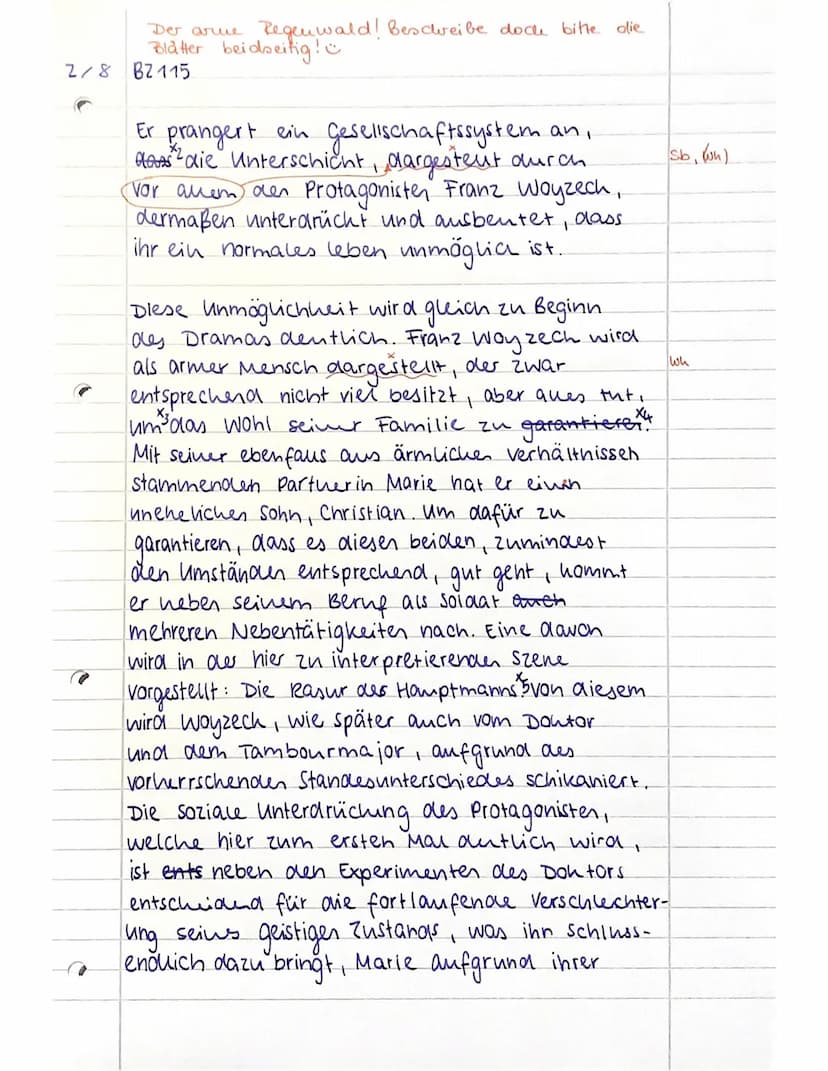 Der arme Regenwald! Beschreibe doch bitte die
Blätter beidseitig! ☺
2/8 BZ115
Er prangert ein Gesellschaftssystem an,
dass x2 die Unterschicht, dargestellt durch
Sb, (Wh)
vor allem den Protagonisten Franz Woyzeck,
dermaßen unterdrückt und ausbeutet, dass
ihr ein normales Leben unmöglich ist.
Diese Unmöglichkeit wird gleich zu Beginn
des Dramas deutlich. Franz Woyzeck wird
als armer Mensch dargestellt, der zwar
Wh
entsprechend nicht viel besitzt, aber alles tut,
um x3 das Wohl seiner Familie zu garantieren x4.
Mit seiner ebenfalls aus ärmlichen Verhältnissen
stammenden Partnerin Marie hat er einen
unehelichen Sohn, Christian. Um dafür zu
garantieren, dass es diesen beiden, zumindest
den Umständen entsprechend, gut geht, kommt
er neben seinem Beruf als Soldat auch
mehreren Nebentätigkeiten nach. Eine davon
wird in der hier zu interpretierenden Szene
vorgestellt: Die Rasur des Hauptmanns x5 von diesem
wird Woyzeck, wie später auch vom Doktor
und dem Tambourmajor, aufgrund des
vorherrschenden Standesunterschiedes schikaniert.
Die soziale Unterdrückung des Protagonisten,
welche hier zum ersten Mal deutlich wird,
ist ents neben den Experimenten des Doktors
entscheidend für die fortlaufende Verschlechter-
ung seines geistigen Zustands, was ihn schluss-
endlich dazu bringt, Marie aufgrund ihrer